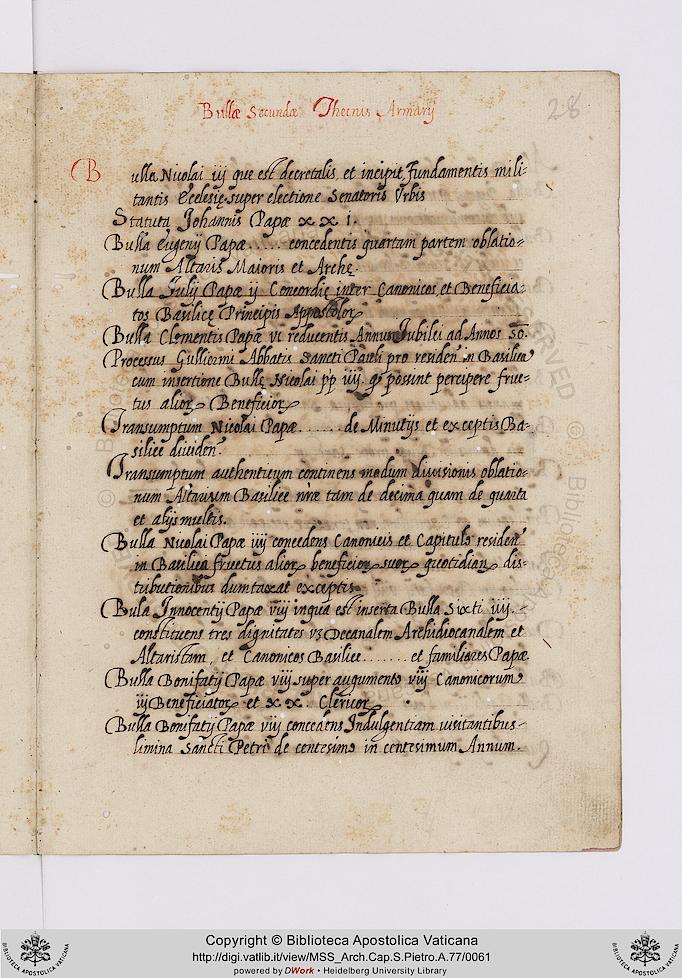 Bullæ Secundæ Thecnis Armarij
28
Bulla Nicolai iij que est decretalis, et incipit, fundamentis mili-
tantis Ecclesię super electione Senatoris Urbis
Statuta Johannis Papæ xxi.
Bulla Eugenij Papæ...... concedentis quartam partem oblatio-
num Altaris Maioris et Archę.
Bulla Julij Papæ ij Concordię inter Canonicos, et Beneficia-
tos Basilicę Principis Appostolor
Bulla Clementis Papæ vi reducentis Annum Jubilei ad Annos 50.
Processus Gulliermi Abbatis Sancti Pauli pro residen in Basilica
cum insertione Bullę Nicolai pp iiij. qp possint percipere fruc-
tus alior Beneficior
Transumptum Nicolai Papæ....... de Minutijs et exceptis Ba-
silice dividen.
Transumptum authenticum continens modum divisionis oblatio-
num Altarium Basilice nræ tam de decima quam de quarta
et alijs multis.
Bulla Nicolai Papæ iiij concedens Canonicis et Capitulo residen
in Basilica fructus alior beneficior suor quotidian dis-
tributionibus dumtaxat exceptis.
Bula Innocentij Papæ viij in qua est inserta Bulla Sixti iiij.
constituens tres dignitates vz Decanalem Archidiocanalem et
Altaristam, et Canonicos Basilice........ et familiares Papæ.
Bulla Bonifatij Papæ viij super augumento viij Canonicorum
iij Beneficiator et xx. Clericor.
Bulla Bonifatij Papæ viij concedens Indulgentiam visitantibus
limina Sancti Petri de centesimo in centesimum Annum.
Copyright © Biblioteca Apostolica Vaticana
http://digi.vatlib.it/view/MSS_Arch.Cap.S.Pietro.A.77/0061
powered by DWork • Heidelberg University Library
BIBLIOTECA APOSTOLICA VATICANA
BIBLIOTECA APOSTOLICA VATICANA